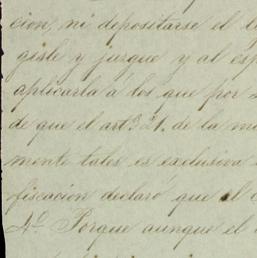 cion, ni depositarse el
gisle y juzgue y al
aplicarla á los que por
de que el art.º 21. de la
mente tales es exclusiva
fiscacion declaró que el
4.º Porque aunque el